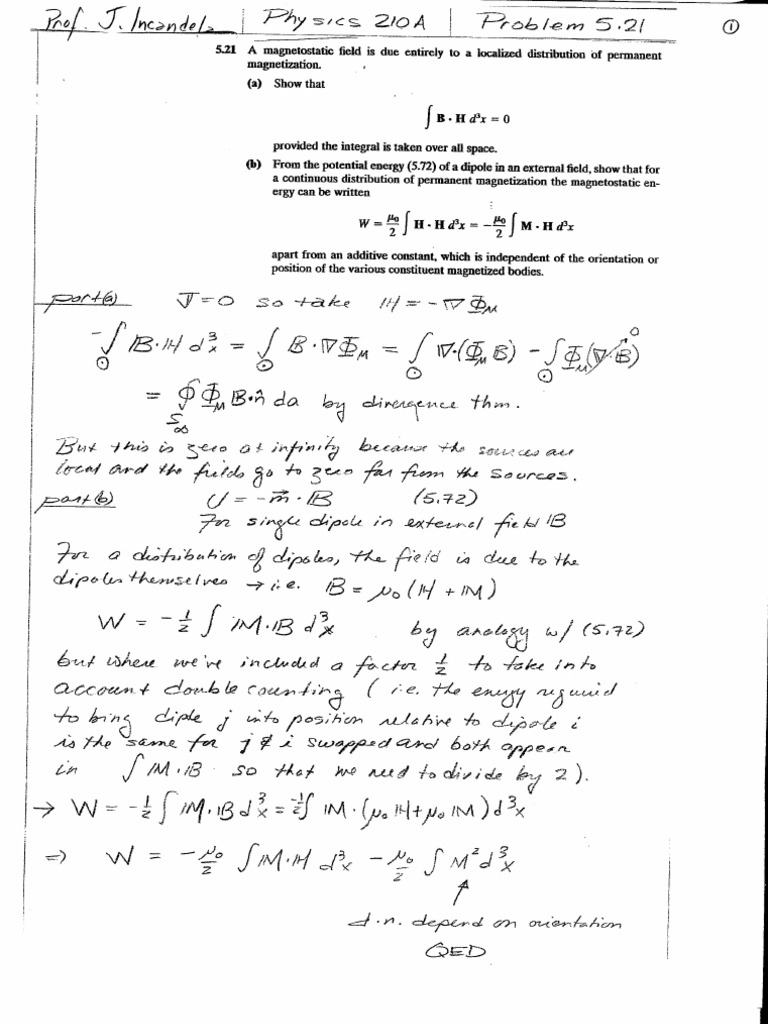 Prof. J. Incandela | Physics 210A | Problem 5.21 ①
5.21 A magnetostatic field is due entirely to a localized distribution of permanent
magnetization.
(a) Show that
∫ B · H d³x = 0
provided the integral is taken over all space.
(b) From the potential energy (5.72) of a dipole in an external field, show that for
a continuous distribution of permanent magnetization the magnetostatic en-
ergy can be written
W = μ₀/2 ∫ H · H d³x = −μ₀/2 ∫ M · H d³x
apart from an additive constant, which is independent of the orientation or
position of the various constituent magnetized bodies.
part(a) J=0 so take H = -∇Φ_M
-∫ B·H d³x = ∫ B·∇Φ_M = ∫ ∇·(Φ_M B) - ∫ Φ_M(∇·B) 0
= ∮_S∞ Φ_M B·n̂ da by divergence thm.
But this is zero at infinity because the sources are
local and the fields go to zero far from the sources.
part(b) U = -m⃗·B (5.72)
For single dipole in external field B
For a distribution of dipoles, the field is due to the
dipoles themselves → i.e. B = μ₀(H + M)
W = -½ ∫ M·B d³x by analogy w/ (5.72)
but where we've included a factor ½ to take into
account double counting (i.e. the energy required
to bring diple j into position relative to dipole i
is the same for j & i swapped and both appear
in ∫ M·B so that we need to divide by 2).
→ W = -½ ∫ M·B d³x = -½ ∫ M·(μ₀H + μ₀M) d³x
⇒ W = -μ₀/2 ∫ M·H d³x - μ₀/2 ∫ M² d³x
↑
d.n. depend on orientation
QED